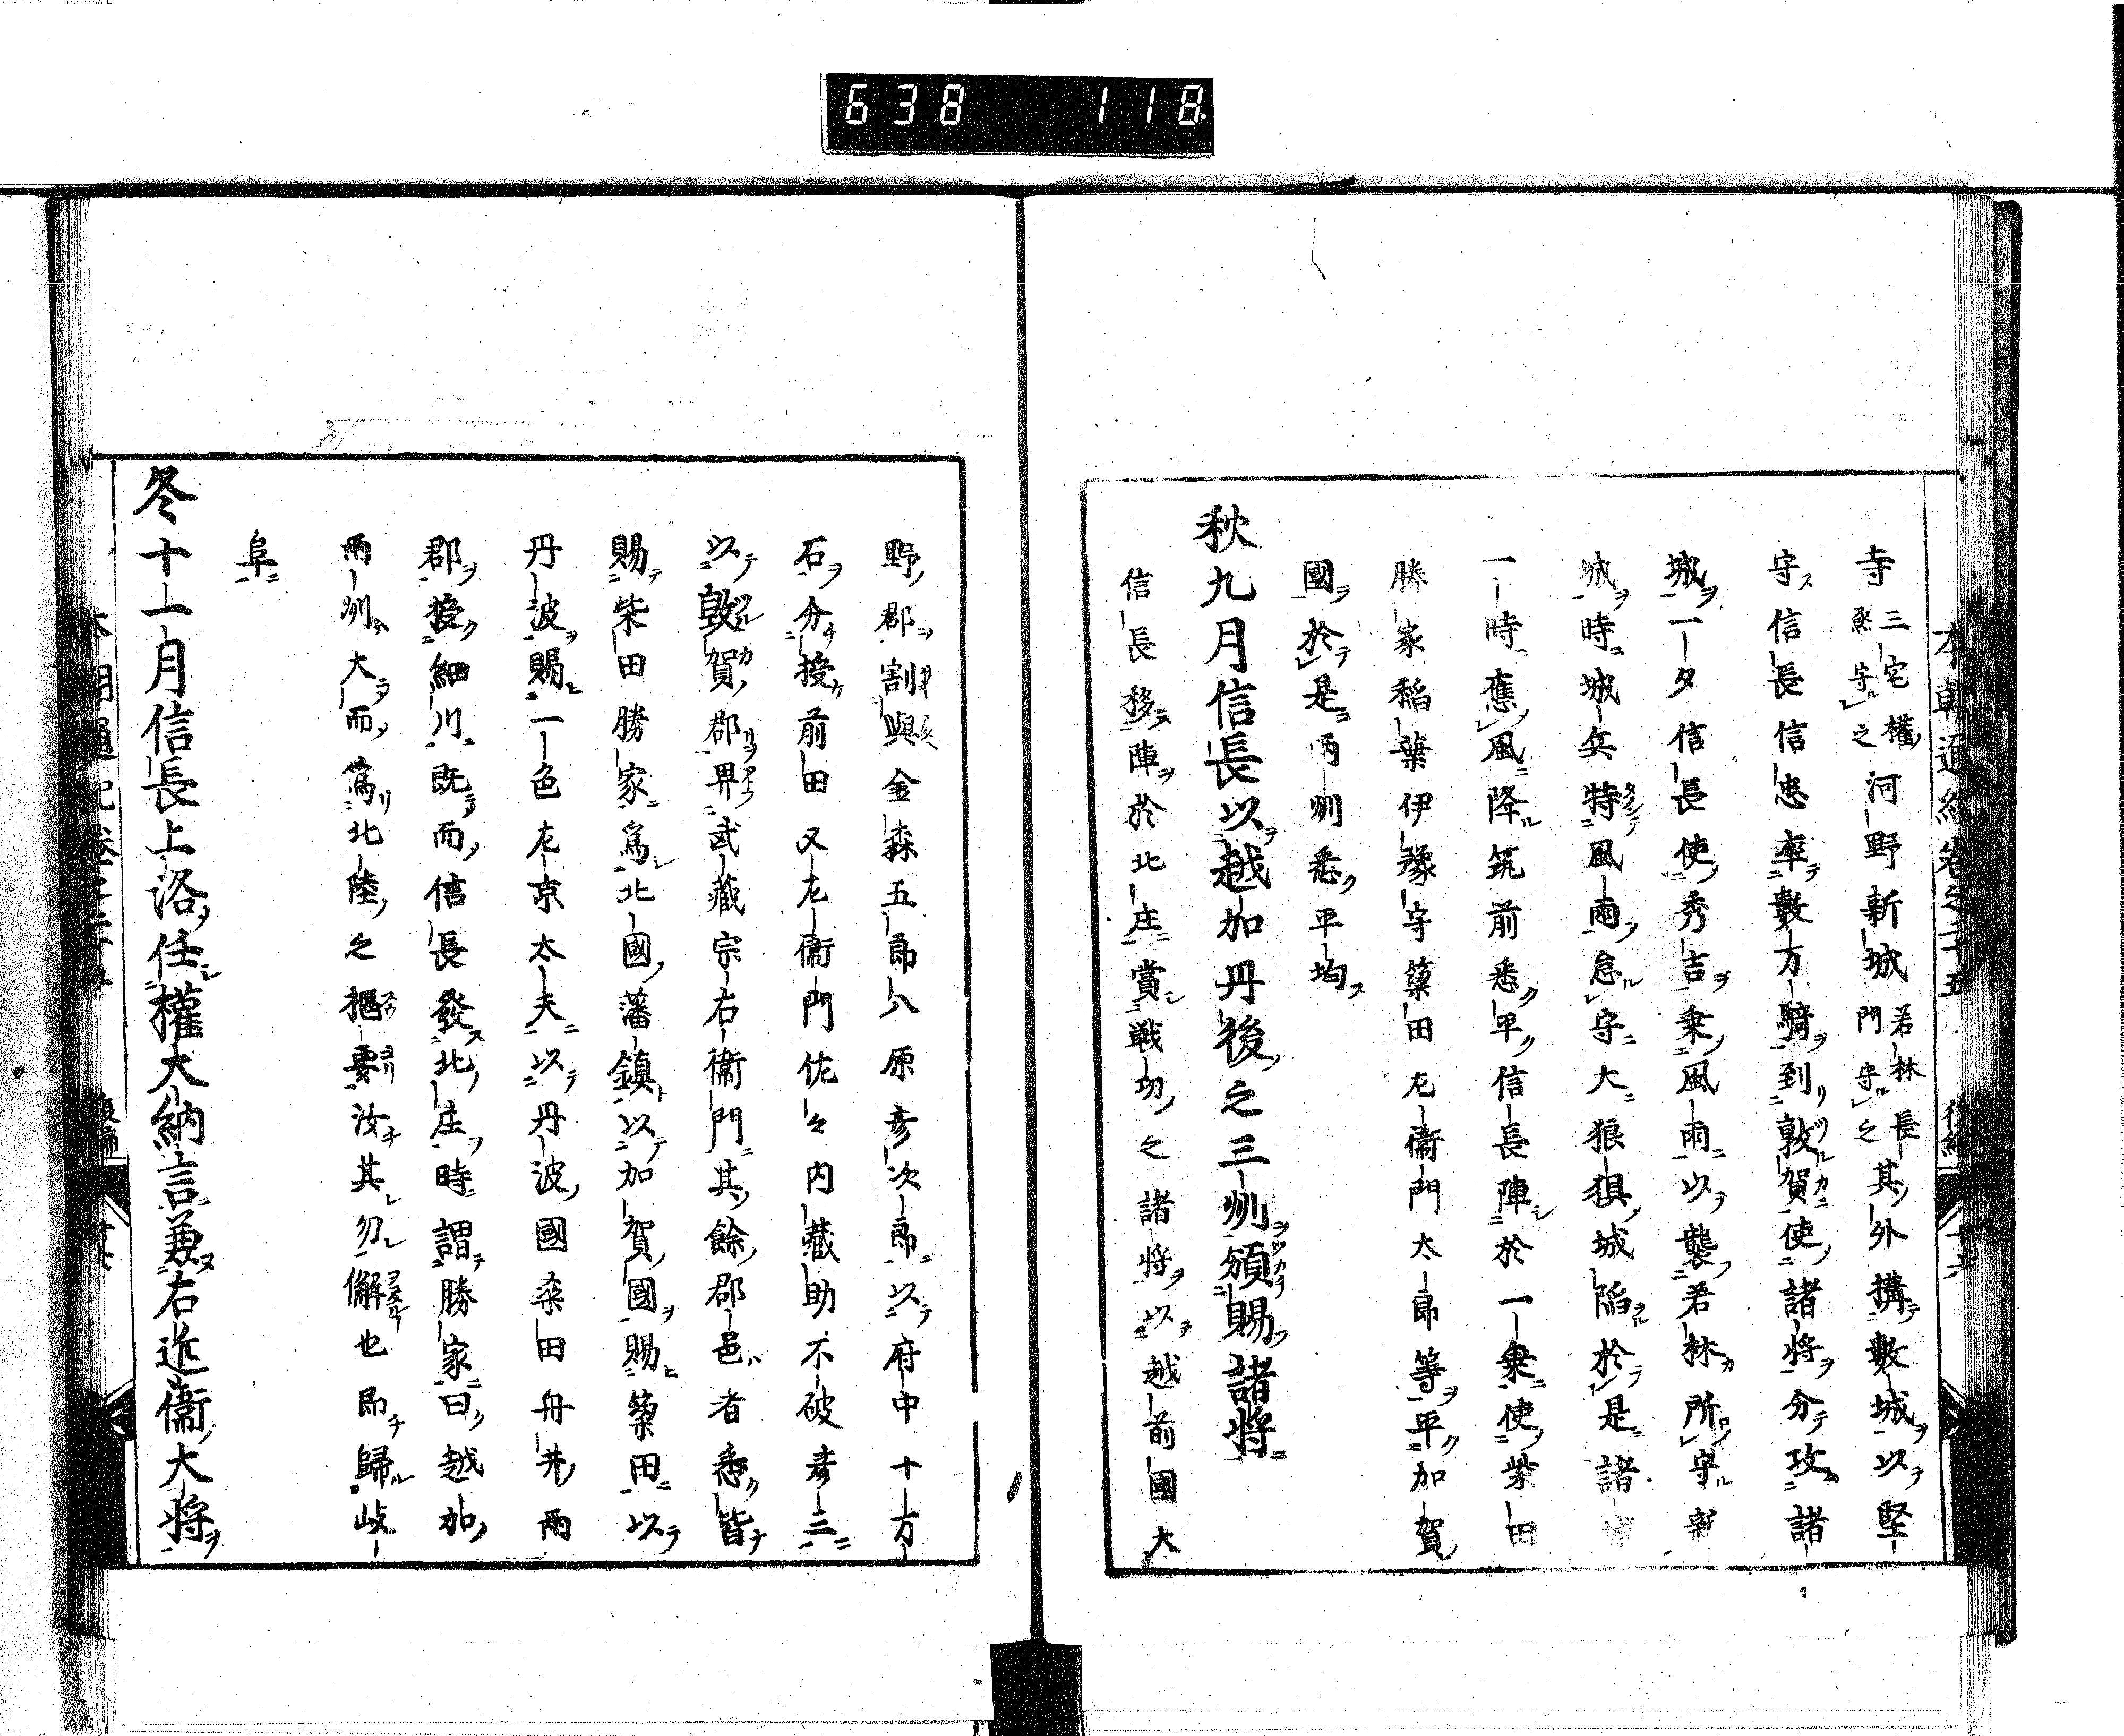 638 118
本朝通紀卷之二十五 後編 十六
寺三宅權丞守之河野新城若林長門守之其外搆數城以堅
守信長信忠率數万騎到敦賀使諸將分攻諸
城一夕信長使秀吉乗風雨以襲若林所守新
城時城兵特風雨怠守大狼狽城陥於是諸城
一時應風降筑前悉平信長陣於一乗使柴田
勝家稲葉伊豫守簗田左衞門太郎等平加賀
國於是両州悉平均
秋九月信長以越加丹後之三州頒賜諸將
信長移陣於北庄賞戦功之諸将以越前國大
野郡割與金森五郎八原彦次郎以府中十万
石分授前田又左衞門佐々内藏助不破彦三
以敦賀郡界武藏宗右衞門其餘郡邑者悉皆
賜柴田勝家爲北國藩鎮以加賀國賜簗田以
丹波賜一色左京太夫以丹波國桒田舟井両
郡授細川既而信長發北庄時謂勝家曰越加
両州大而爲北陸之樞要汝其勿懈也即歸岐
阜
冬十一月信長上洛任權大納言兼右近衞大將
本朝通紀卷之二十五 後編